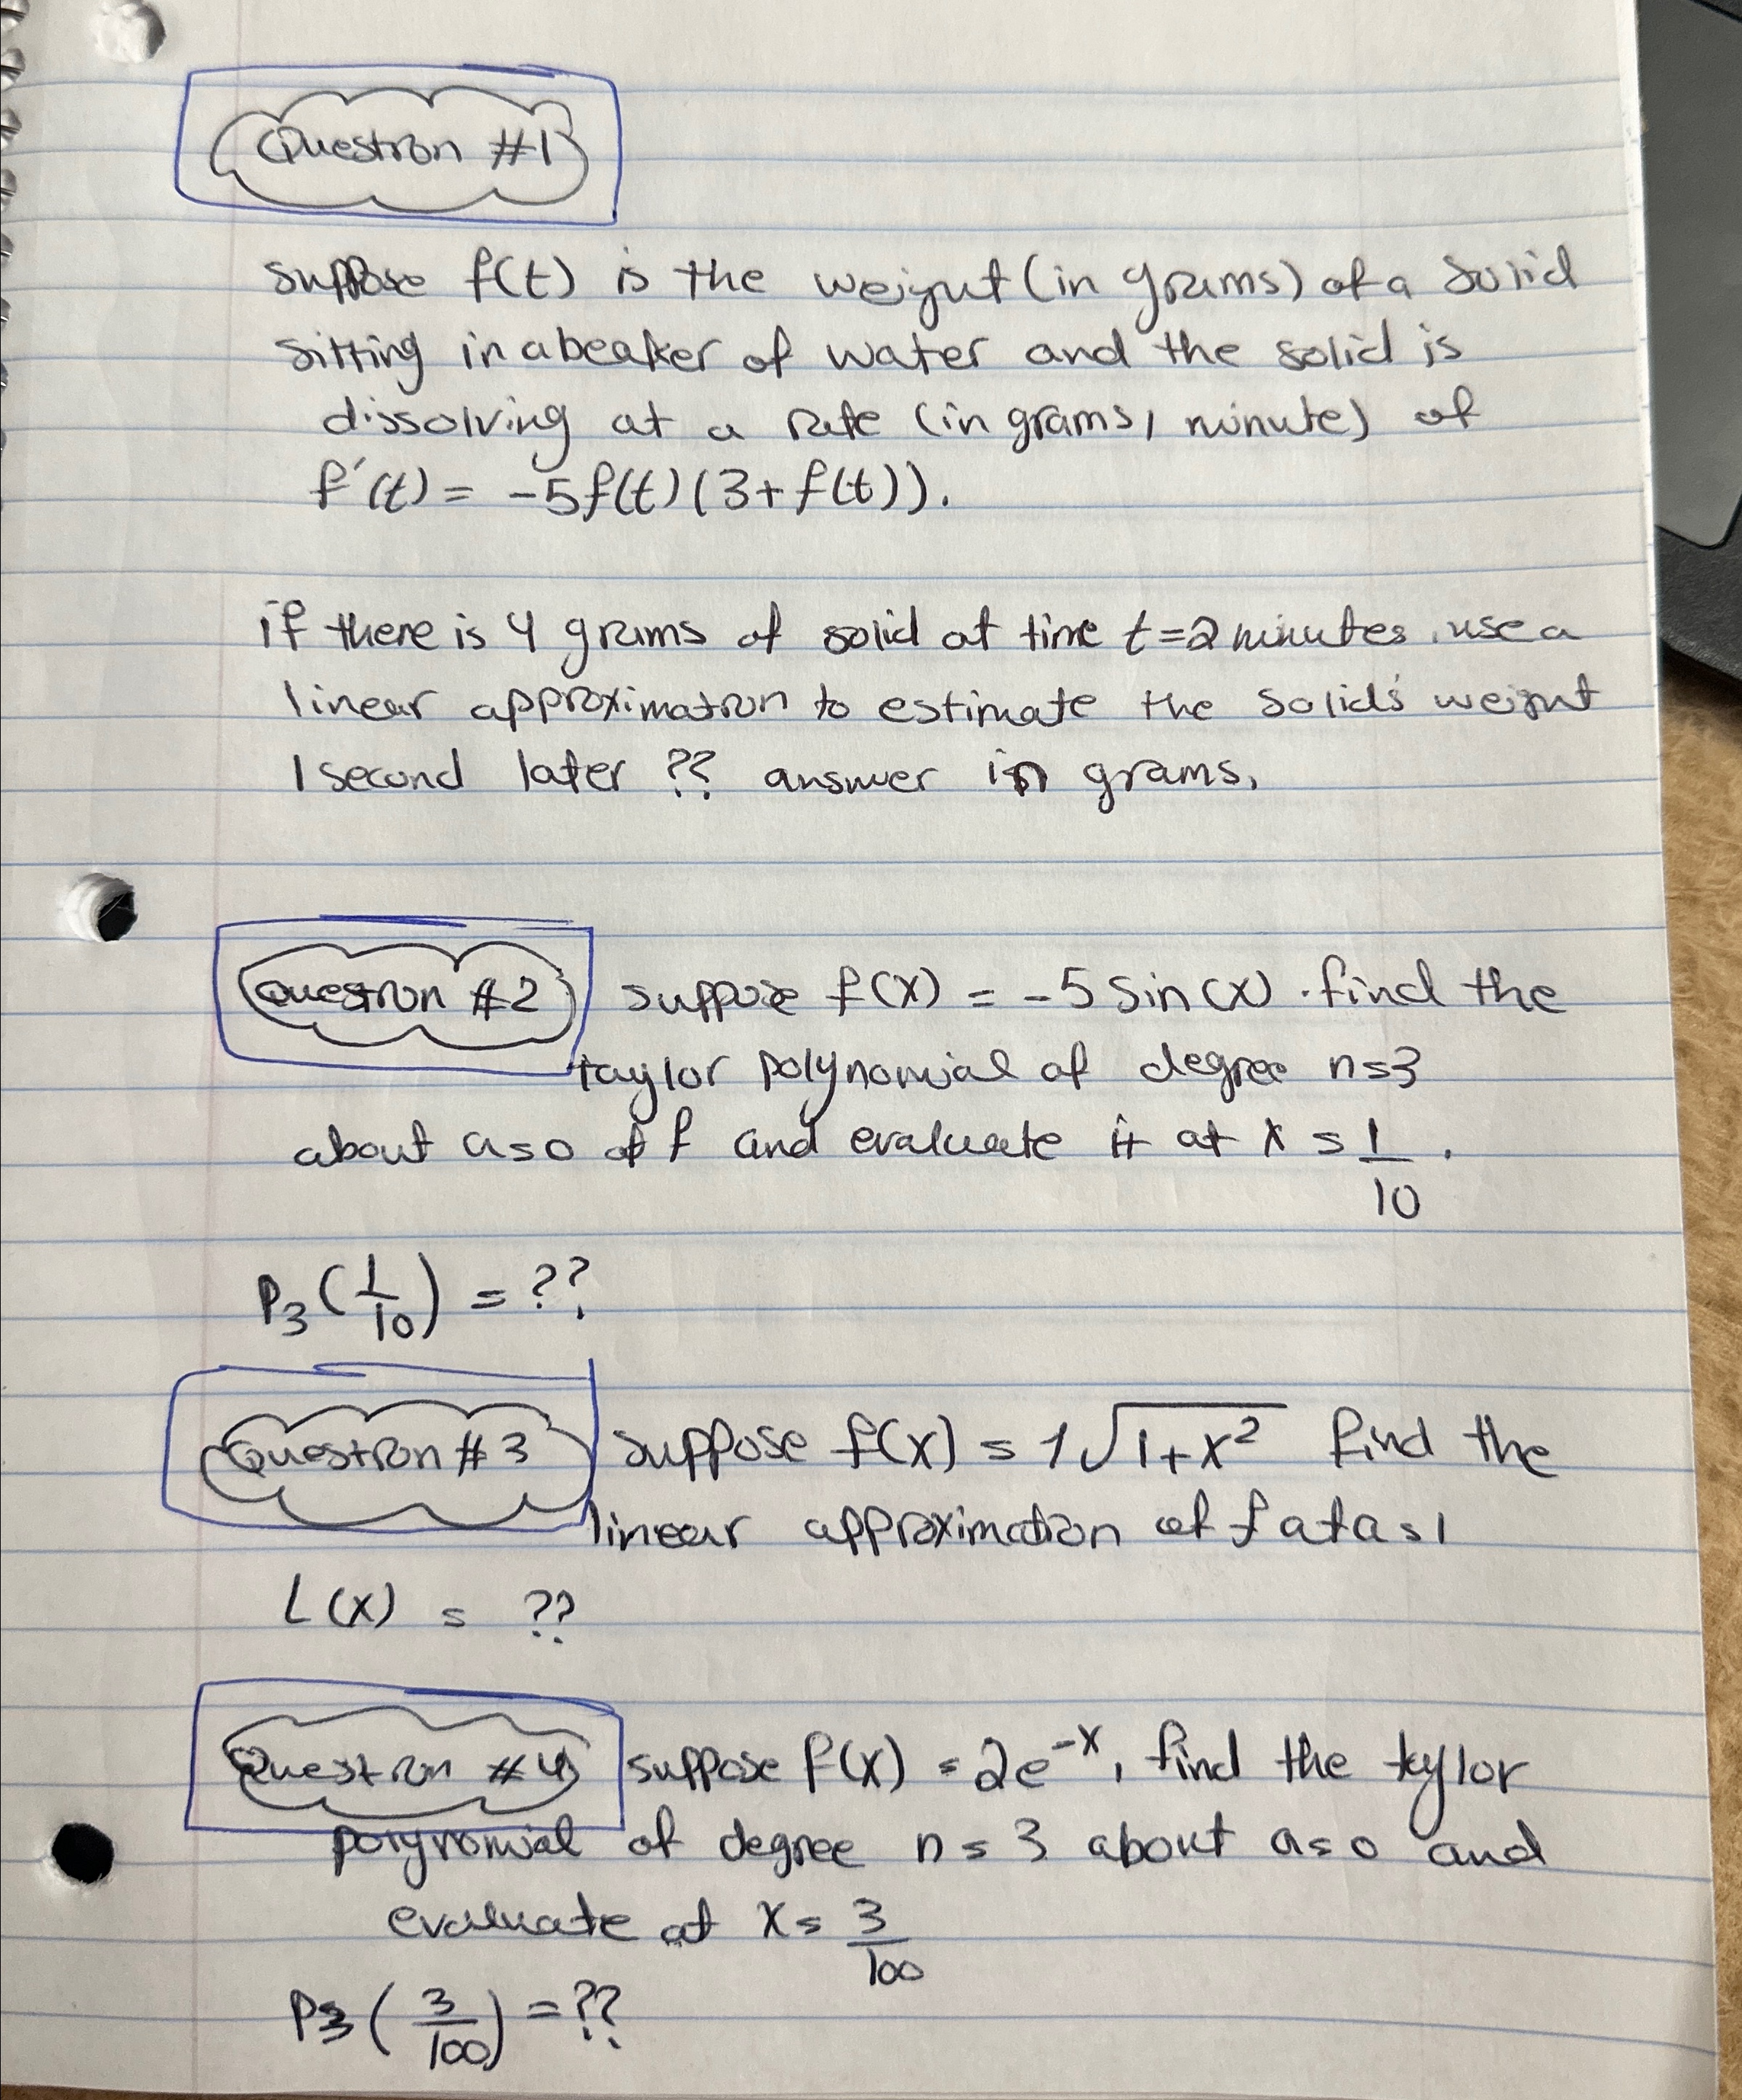 Question #1
suppose f(t) is the weight (in grams) of a solid
sitting in a beaker of water and the solid is
dissolving at a rate (in grams/minute) of
f'(t) = -5f(t)(3+f(t)).
if there is 4 grams of solid at time t=2 minutes. use a
linear approximation to estimate the solid's weight
1 second later ?? answer in grams.
Question #2 suppose f(x) = -5 sin(x). find the
taylor polynomial of degree n=3
about a=0 of f and evaluate it at x = 1/10.
P₃(1/10) = ??
Question #3 suppose f(x) = 1√1+x² find the
linear approximation of f at a=1
L(x) = ??
Question #4 suppose f(x) = 2e⁻ˣ, find the taylor
polynomial of degree n=3 about a=0 and
evaluate at x= 3/100
P₃(3/100) = ??